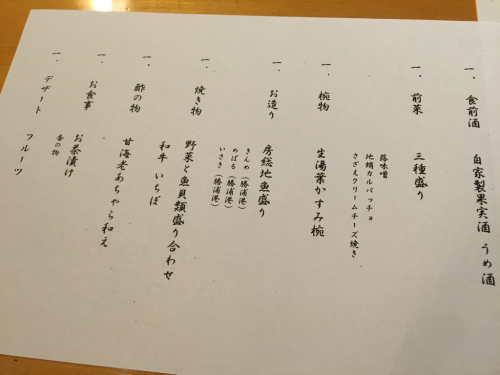 一．食前酒　自家製果実酒　うめ酒
一．前菜　三種盛り
蕗味噌
地蛸カルパッチョ
さざえクリームチーズ焼き
一．椀物　生湯葉かすみ椀
一．お造り　房総地魚盛り
きんめ（勝浦港）
めばる（勝浦港）
いさき（勝浦港）
一．焼き物　野菜と魚貝類盛り合わせ
和牛　いちぼ
一．酢の物　甘海老あちゃら和え
一．お食事　お茶漬け
香の物
一．デザート　フルーツ